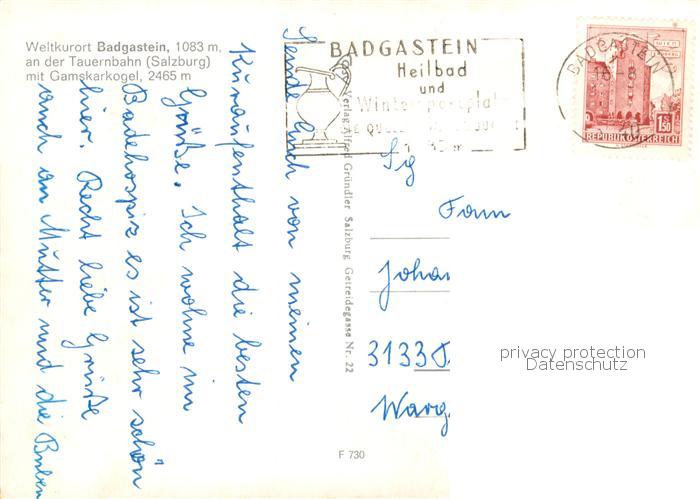 Weltkurort Badgastein, 1083 m,
an der Tauernbahn (Salzburg)
mit Gamskarkogel, 2465 m
Sende Euch von meinem
Kuraufenthalt die besten
Grüße. Ich wohne im
Badehospiz es ist sehr schön
hier. Recht liebe Grüße
auch an Mutter und die Buben
Verlag Alfred Gründler Salzburg Getreidegasse Nr. 22
BADGASTEIN
Heilbad
und
Wintersportplatz
BADGASTEIN
WIEN
1.50
REPUBLIK ÖSTERREICH
Fam
Johan
3133
Warg
F 730
privacy protection
Datenschutz